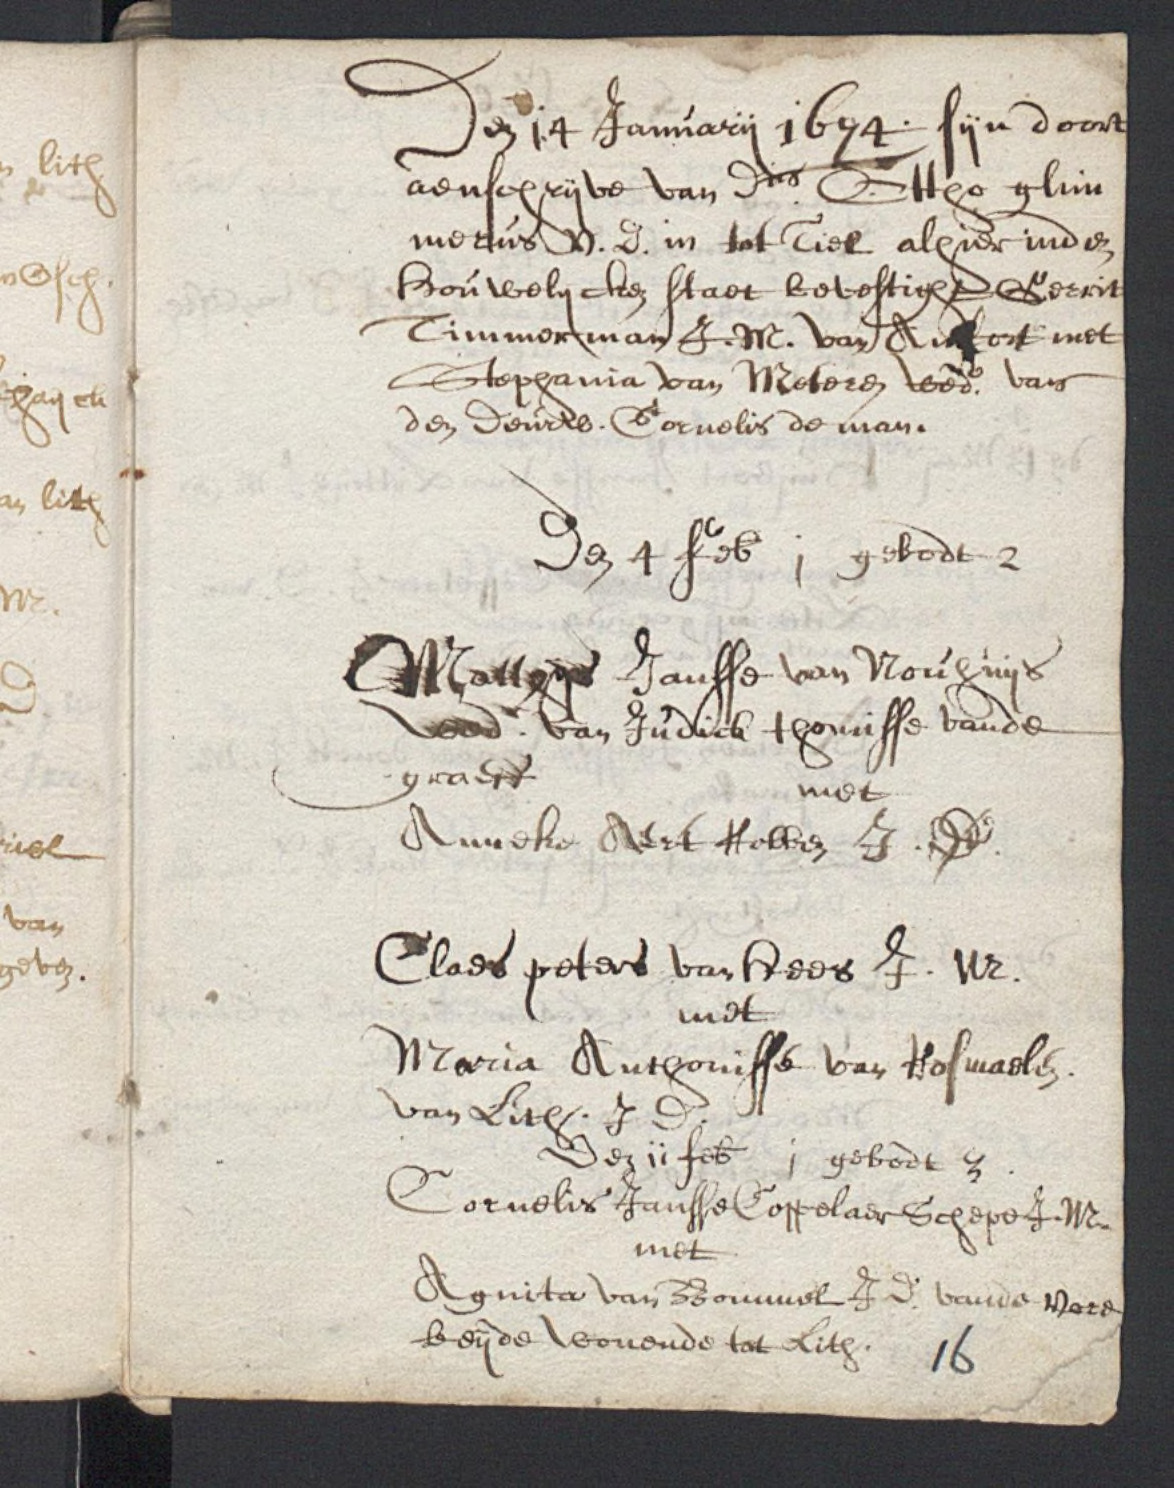 lith
Osch.
an lith
M.
van
geven.
Den 14 Januarij 1674. sijn doort
aenschrijve van Dns Ottho glim
merus V. D. m tot Tiel alhier inden
Houwelijcken staet bevesticht Gerrit
Timmerman J. M. van met
Stephania van Meteren wed. van
den Deurw. Cornelis de man.
Den 4 Feb j gebodt 2
Matthijs Jansse van Nouhuijs
wed. van Judick thonisse vande
graeff met
Anneke Aert Robben J. D.
Claes peters van Hees J. M.
met
Maria Anthonisse van Rosmaelen.
van Lith. J D.
Den 11 feb j gebodt 3.
Cornelis Jansse Coppelaer Schepe J. M.
met
Agnita van Bommel J D. vande Vere
beijde wonende tot Lith.
16